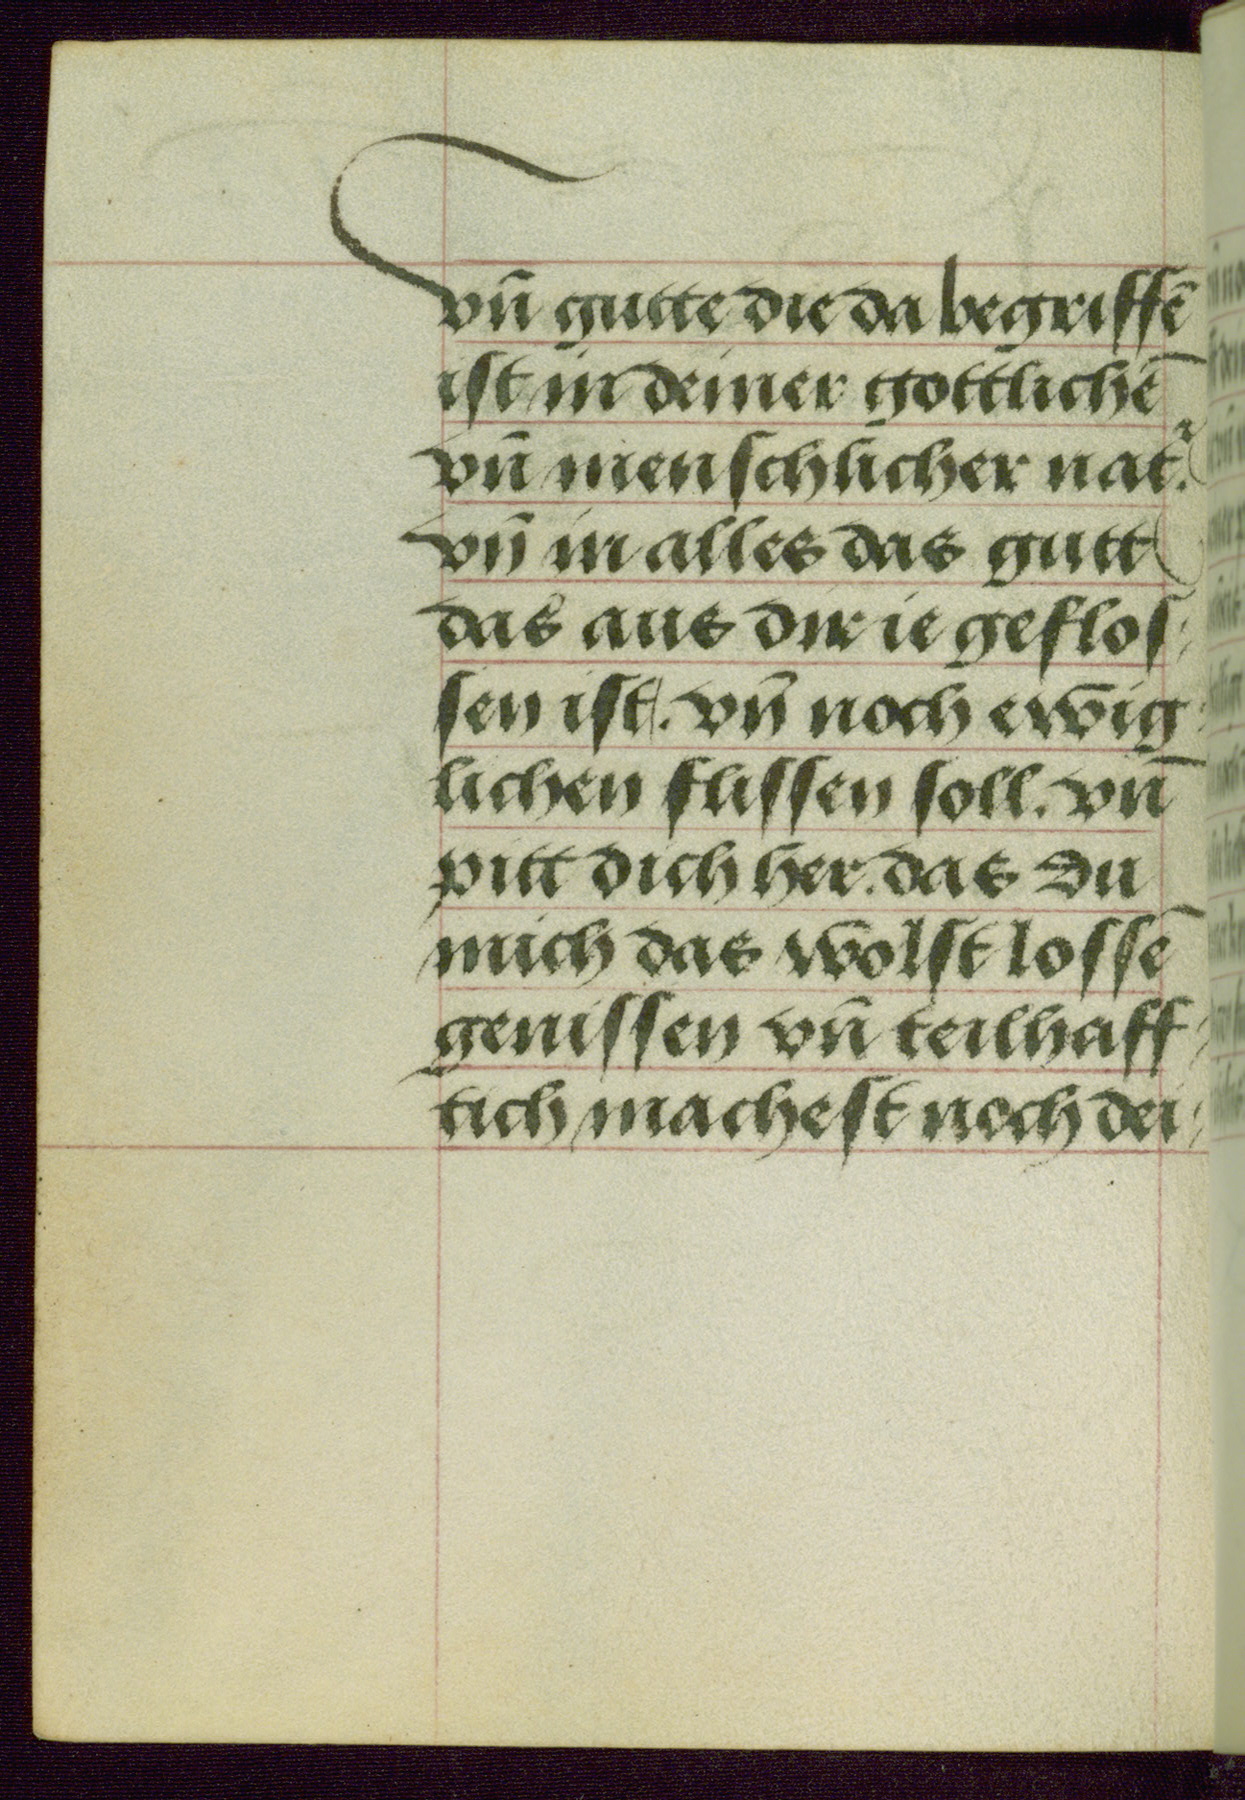 vn̄ gutte die da begriffē
ist in deiner gottlichē
vn̄ menschlicher nat᷑.
vn̄ in alles das gutt
das aus dir ie geflos-
sen ist. vn̄ noch ewig-
lichen flissen soll. vn̄
pitt dich her. das du
mich das wolst lossē
genissen vn̄ teilhaff-
tich machest noch dei-